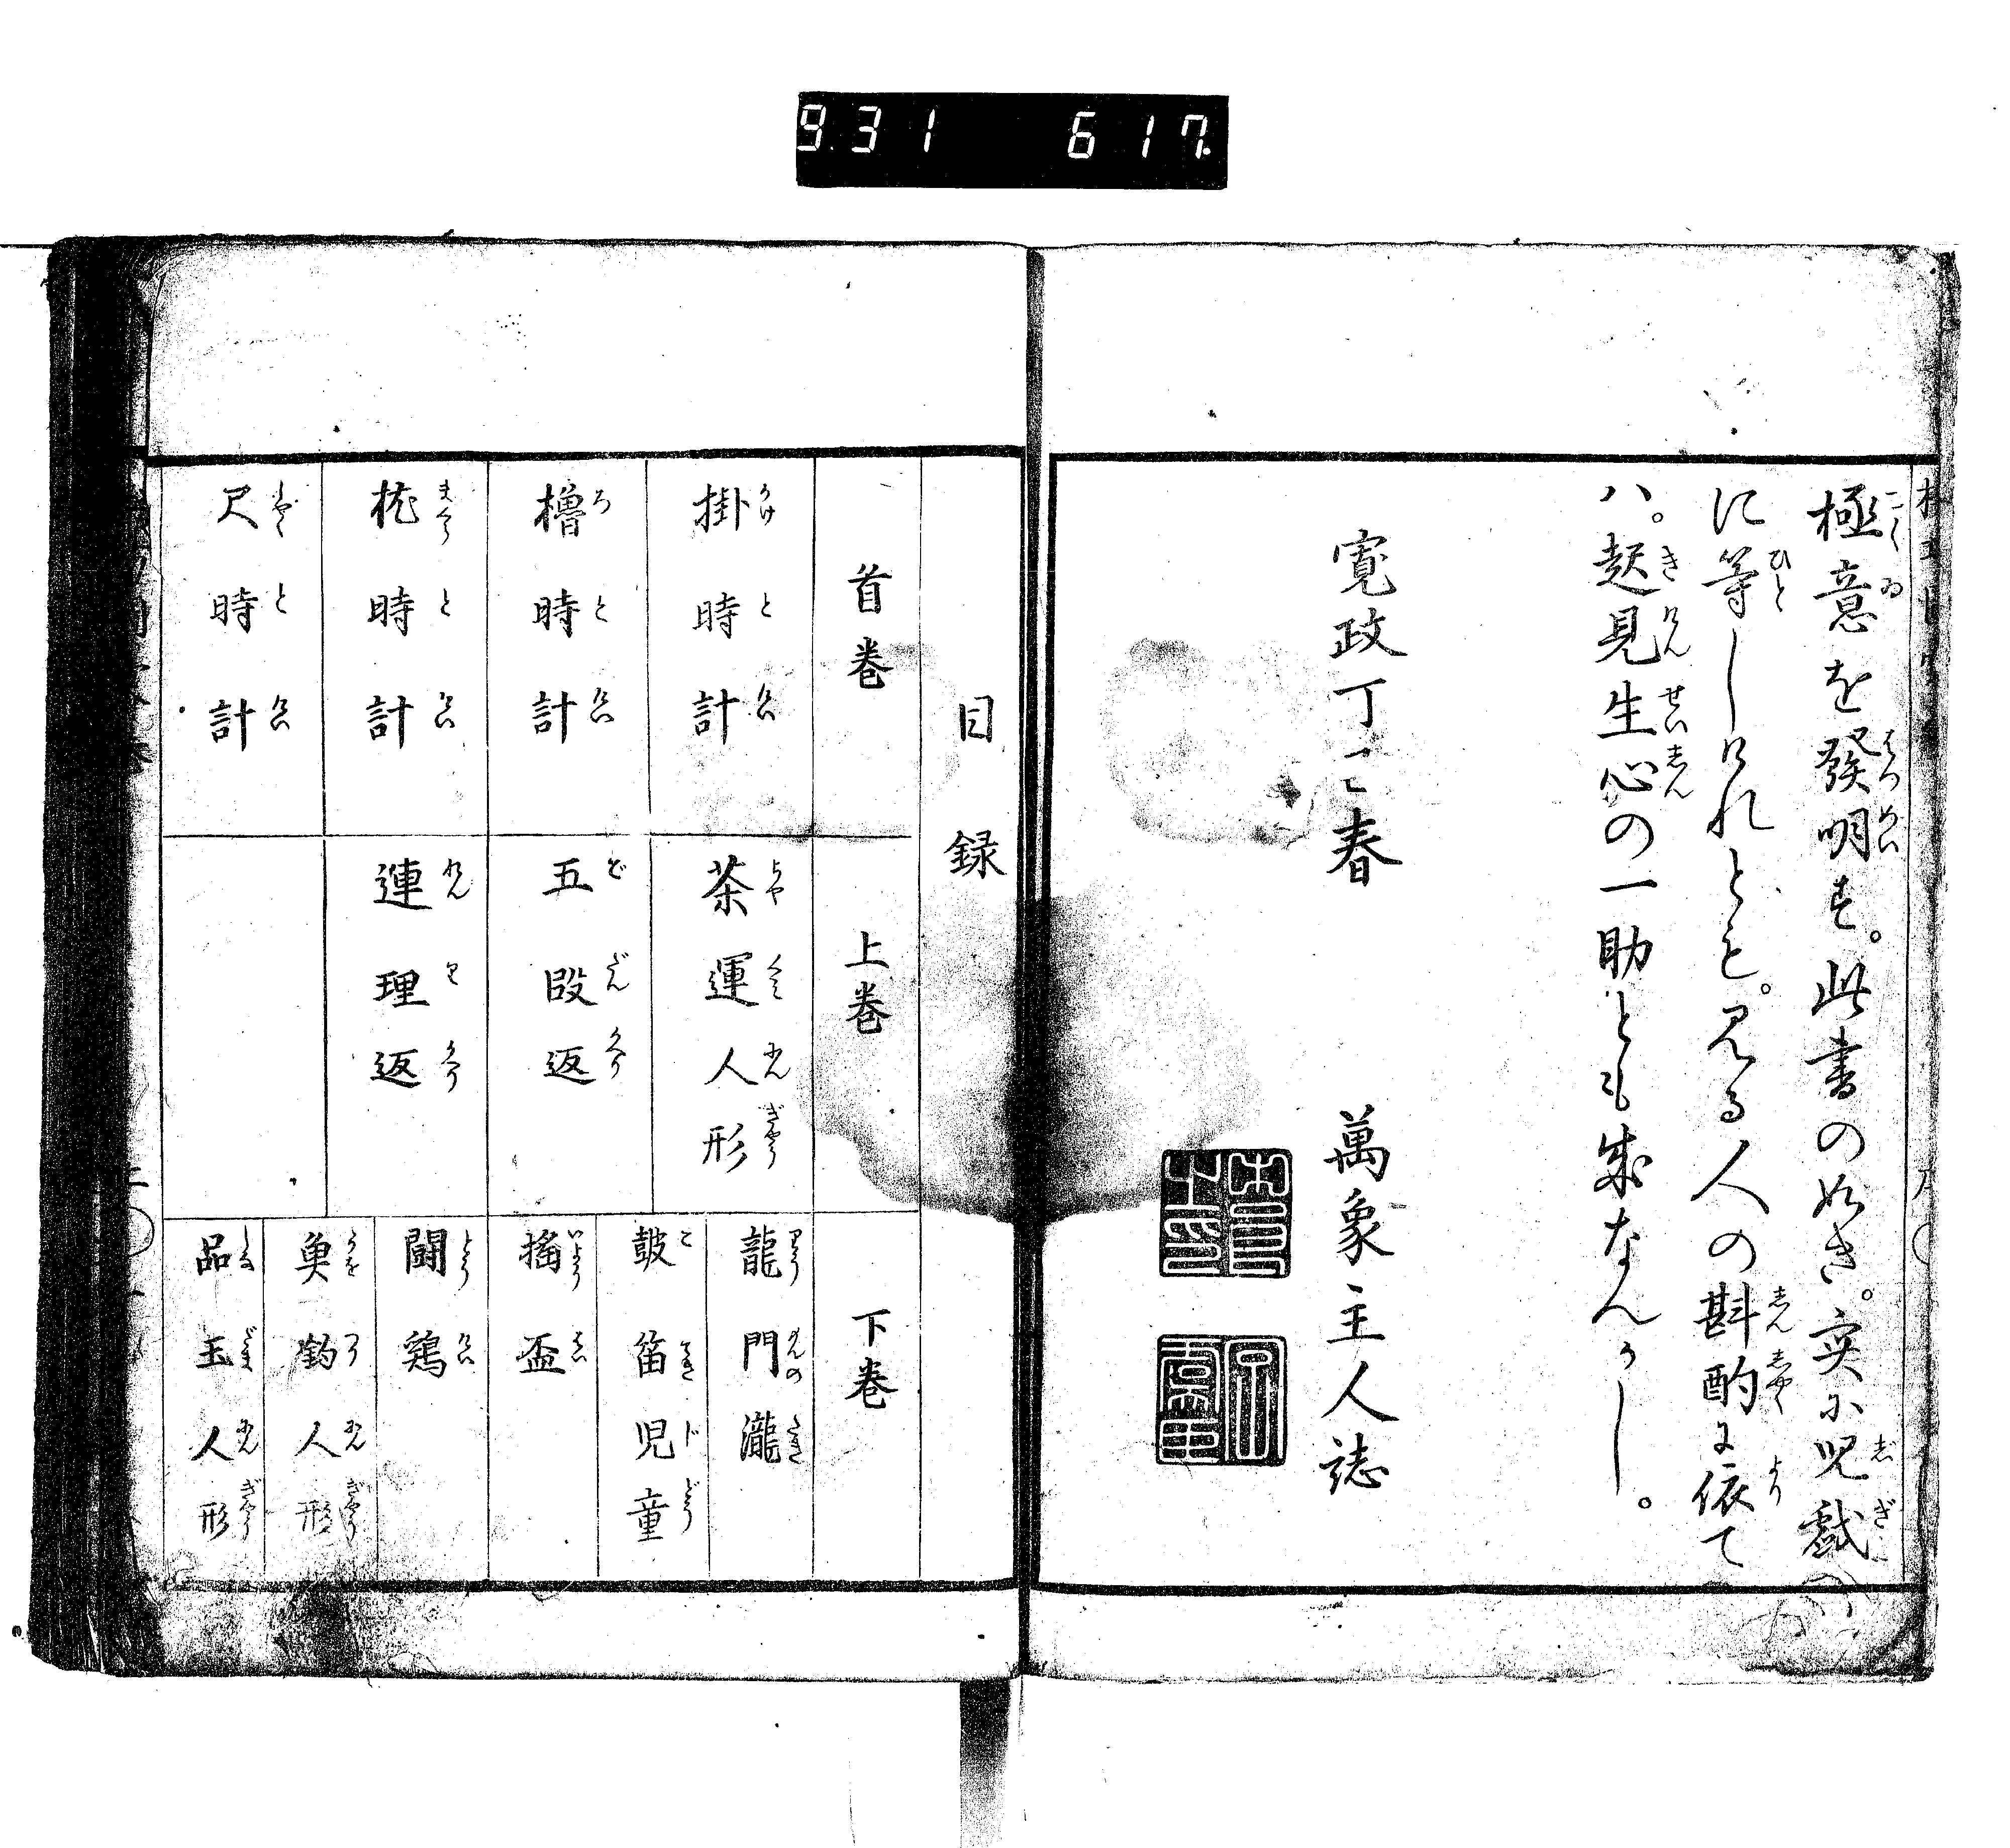 9.31 617.
極意を發明す。此書の如き。実に児戯
に等しけれとも。見る人の斟酌に依て
ハ。起見生心の一助とも成なんかし。
寛政丁巳春
萬象主人誌
目録
首巻
掛時計
櫓時計
枕時計
尺時計
上巻
茶運人形
五段返
連理返
下巻
龍門瀧
鼓笛児童
揺盃
闘鶏
魚釣人形
品玉人形